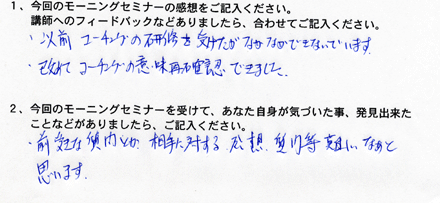 1、今回のモーニングセミナーの感想をご記入ください。
講師へのフィードバックなどありましたら、合わせてご記入ください。
・以前 コーチングの研修を受けたがなかなかできないでいます。
・改めてコーチングの意味再確認できました。
2、今回のモーニングセミナーを受けて、あなた自身が気づいた事、発見出来た
ことなどがありましたら、ご記入ください。
・前 質問とか 相手に対する 感想、質問等 難しいなぁと
思います。